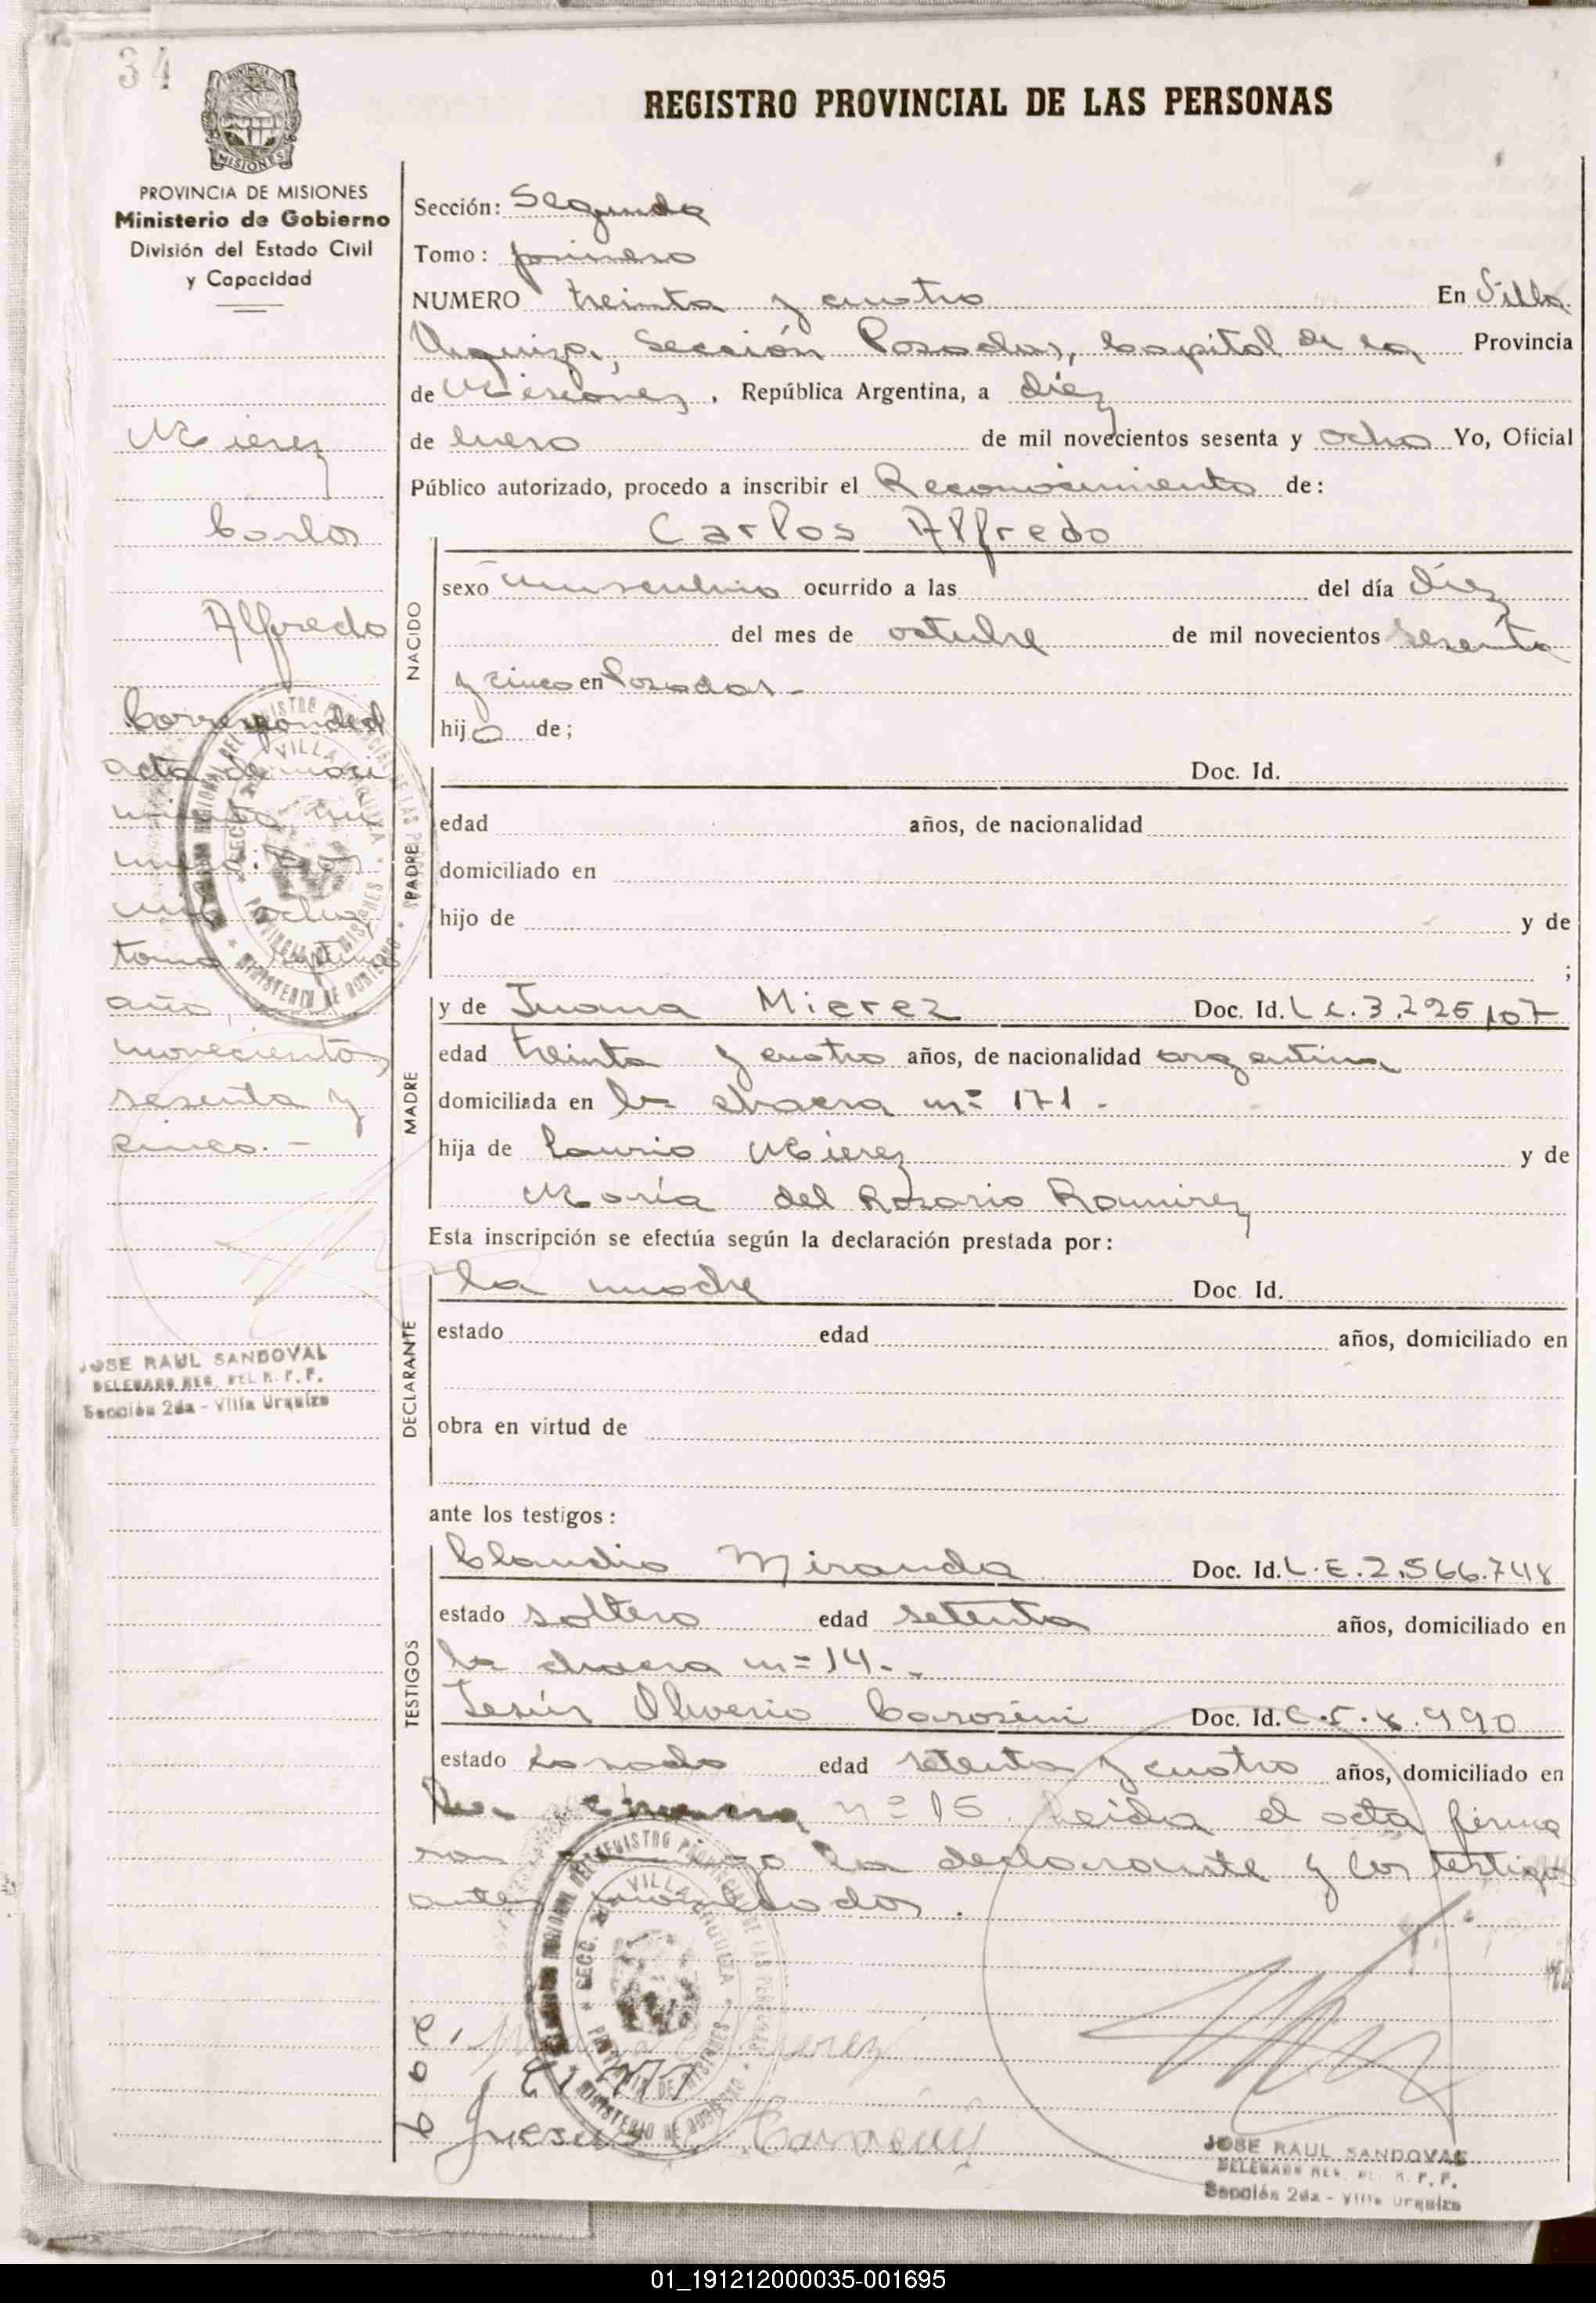 34
MISIONES
PROVINCIA DE MISIONES
Ministerio de Gobierno
División del Estado Civil
y Capacidad
REGISTRO PROVINCIAL DE LAS PERSONAS
Sección: Segunda
Tomo: primero
NUMERO treinta y cuatro En Villa
Urquiza, Sección Posadas, Capital de la Provincia
de Misiones, República Argentina, a diez
de Enero de mil novecientos sesenta y ocho Yo, Oficial
Público autorizado, procedo a inscribir el Reconocimiento de:
Carlos Alfredo
NACIDO
sexo masculino ocurrido a las del día diez
del mes de octubre de mil novecientos sesenta
y cinco en Posadas.-
hijo de;
PADRE
Doc. Id.
edad años, de nacionalidad
domiciliado en
hijo de y de
;
MADRE
y de Juana Mierez Doc. Id. L C. 3.225.107
edad treinta y cuatro años, de nacionalidad argentina
domiciliada en la chacra nº 171 -
hija de Laurio Mierez y de
María del Rosario Ramirez
Esta inscripción se efectúa según la declaración prestada por:
DECLARANTE
la madre Doc. Id.
estado edad años, domiciliado en
obra en virtud de
ante los testigos:
TESTIGOS
Claudio Miranda Doc. Id. L.E. 2.566.748
estado soltero edad setenta años, domiciliado en
la chacra nº 14.-
Jesús Oliverio Carosini Doc. Id. C.I. 990
estado casado edad setenta y cuatro años, domiciliado en
la chacra nº 15 Leida el acta firma
ran conmigo la declarante y los testigos
antes nombrados.
Mierez
Carlos
Alfredo
Corresponde al
acta de naci
miento nu
mero: dos
mil ocho,
tomo septimo
año,
novecientos
sesenta y
cinco.-
JOSE RAUL SANDOVAL
DELEGADO REG. DEL R. P. P.
Sección 2da - Villa Urquiza
Juesus Carosini
JOSE RAUL SANDOVAL
DELEGADO REG. DEL R. P. P.
Sección 2da - Villa Urquiza
01_191212000035-001695